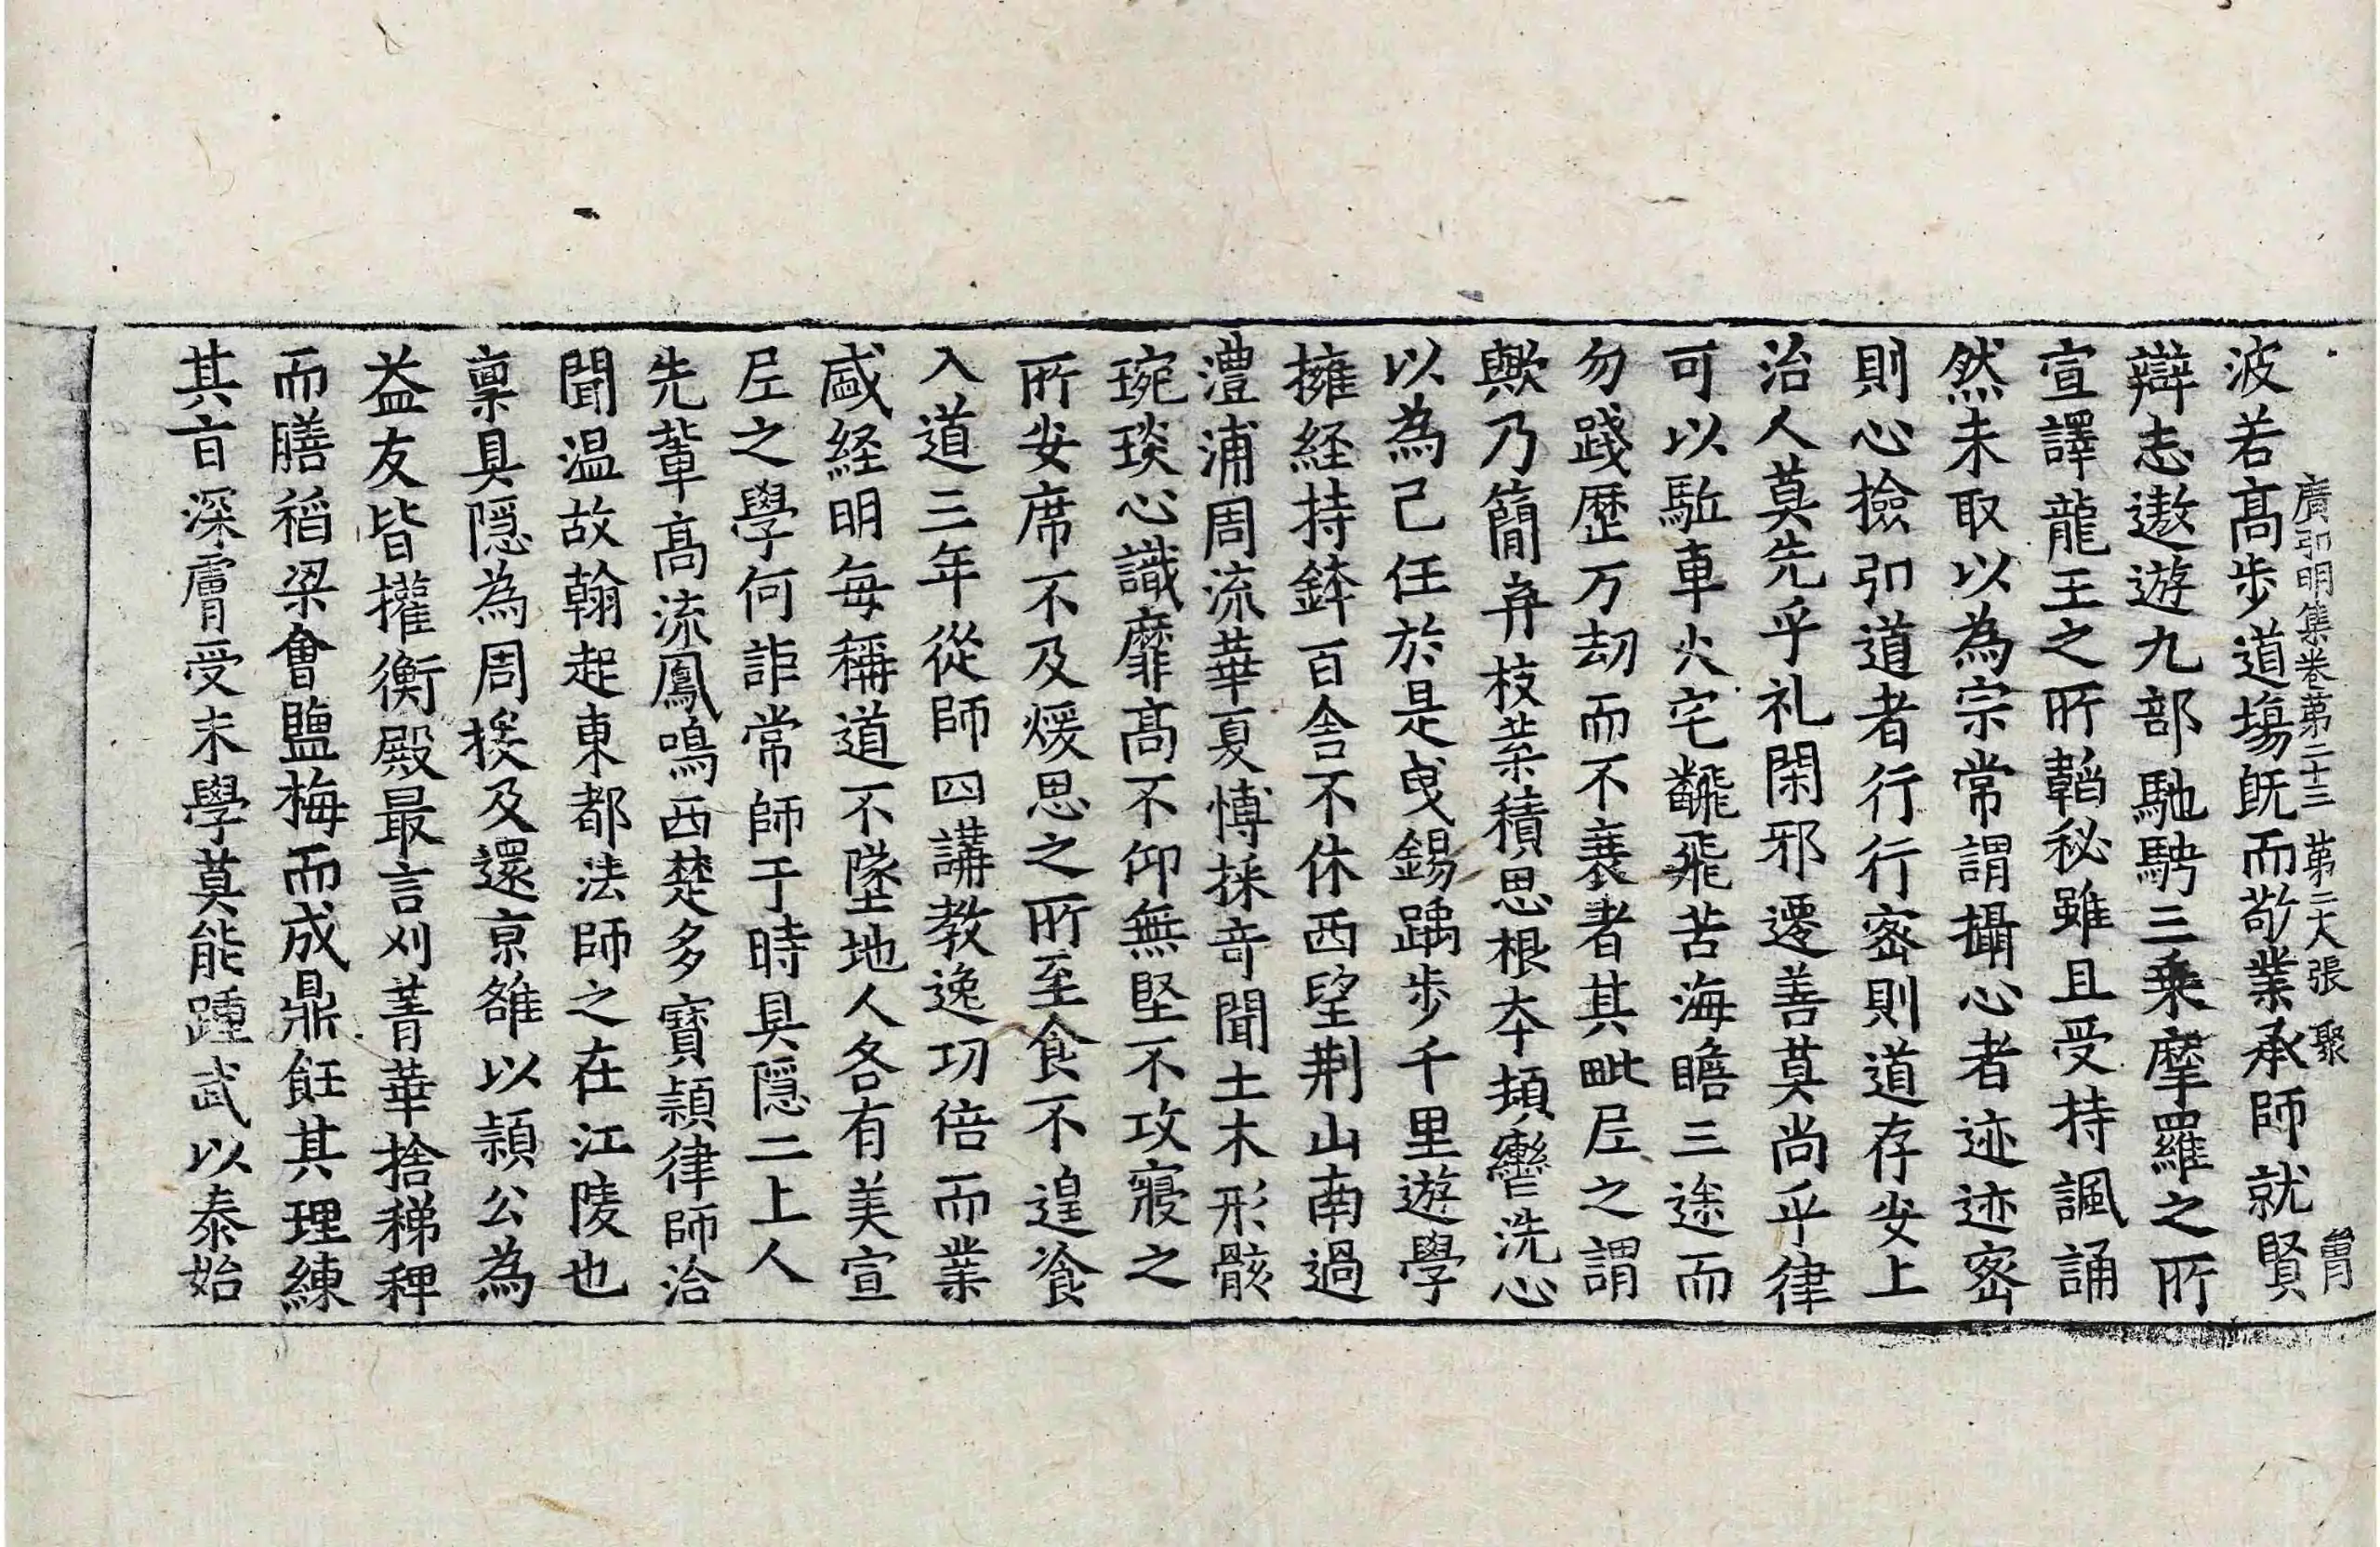 廣弘明集卷第二十三 第二大張 聚
波若高步道場旣而敬業承師就賢
辯志遨遊九部馳騁三乘摩羅之所
宣譯龍王之所韜秘雖且受持諷誦
然未取以為宗常謂攝心者迹迹密
則心撿弘道者行行密則道存安上
治人莫先乎礼閑邪遷善莫尚乎律
可以駈車火宅翻飛苦海瞻三途而
勿踐歷万劫而不衰者其毗尼之謂
歟乃簡弃枝葉積思根本頓轡洗心
以為己任於是曳錫踽步千里遊學
擁経持鉢百舍不休西望荆山南過
澧浦周流華夏博採奇聞土木形骸
琬琰心識靡高不仰無堅不攻寢之
所安席不及煖思之所至食不遑飡
入道三年從師四講教逸功倍而業
盛経明每稱道不墜地人各有美宣
尼之學何詎常師于時具隱二上人
先輩高流鳳鳴西楚多寶穎律師洽
聞温故翰起東都法師之在江陵也
禀具隱為周挨及還京雒以穎公為
益友皆權衡殿最言刈菁華捨稊稗
而膳稻梁會鹽梅而成鼎飪其理練
其旨深膚受末學莫能踵武以泰始